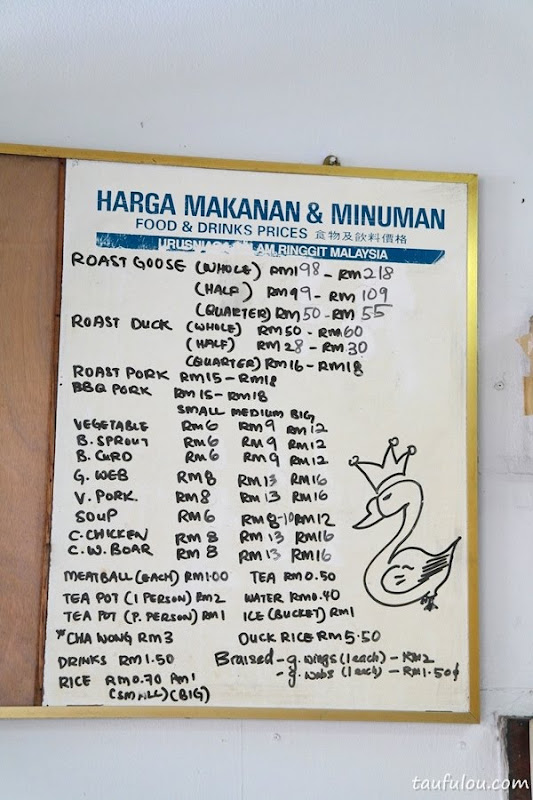 HARGA MAKANAN & MINUMAN
FOOD & DRINKS PRICES 食物及飲料價格
URUSNIAGA DALAM RINGGIT MALAYSIA
ROAST GOOSE (WHOLE) RM198 - RM218
(HALF) RM99 - RM 109
(QUARTER) RM50 - RM 55
ROAST DUCK (WHOLE) RM50 - RM60
(HALF) RM28 - RM30
(QUARTER) RM16 - RM18
ROAST PORK RM15 - RM18
BBQ PORK RM15 - RM18
SMALL MEDIUM BIG
VEGETABLE RM6 RM9 RM12
B. SPROUT RM6 RM9 RM12
B. CURD RM6 RM9 RM12
G. WEB RM8 RM13 RM16
V. PORK RM8 RM13 RM16
SOUP RM6 RM8-10 RM12
C. CHICKEN RM8 RM13 RM16
C. W. BOAR RM8 RM13 RM16
MEATBALL (EACH) RM1.00 TEA RM0.50
TEA POT (1 PERSON) RM2 WATER RM0.40
TEA POT (P. PERSON) RM1 ICE (BUCKET) RM1
*CHA WONG RM3 DUCK RICE RM5.50
DRINKS RM1.50 Braised - g. wings (1 each) - RM2
- g. webs (1 each) - RM1.50¢
RICE RM0.70 RM1
(SMALL) (BIG)
taufulou.com